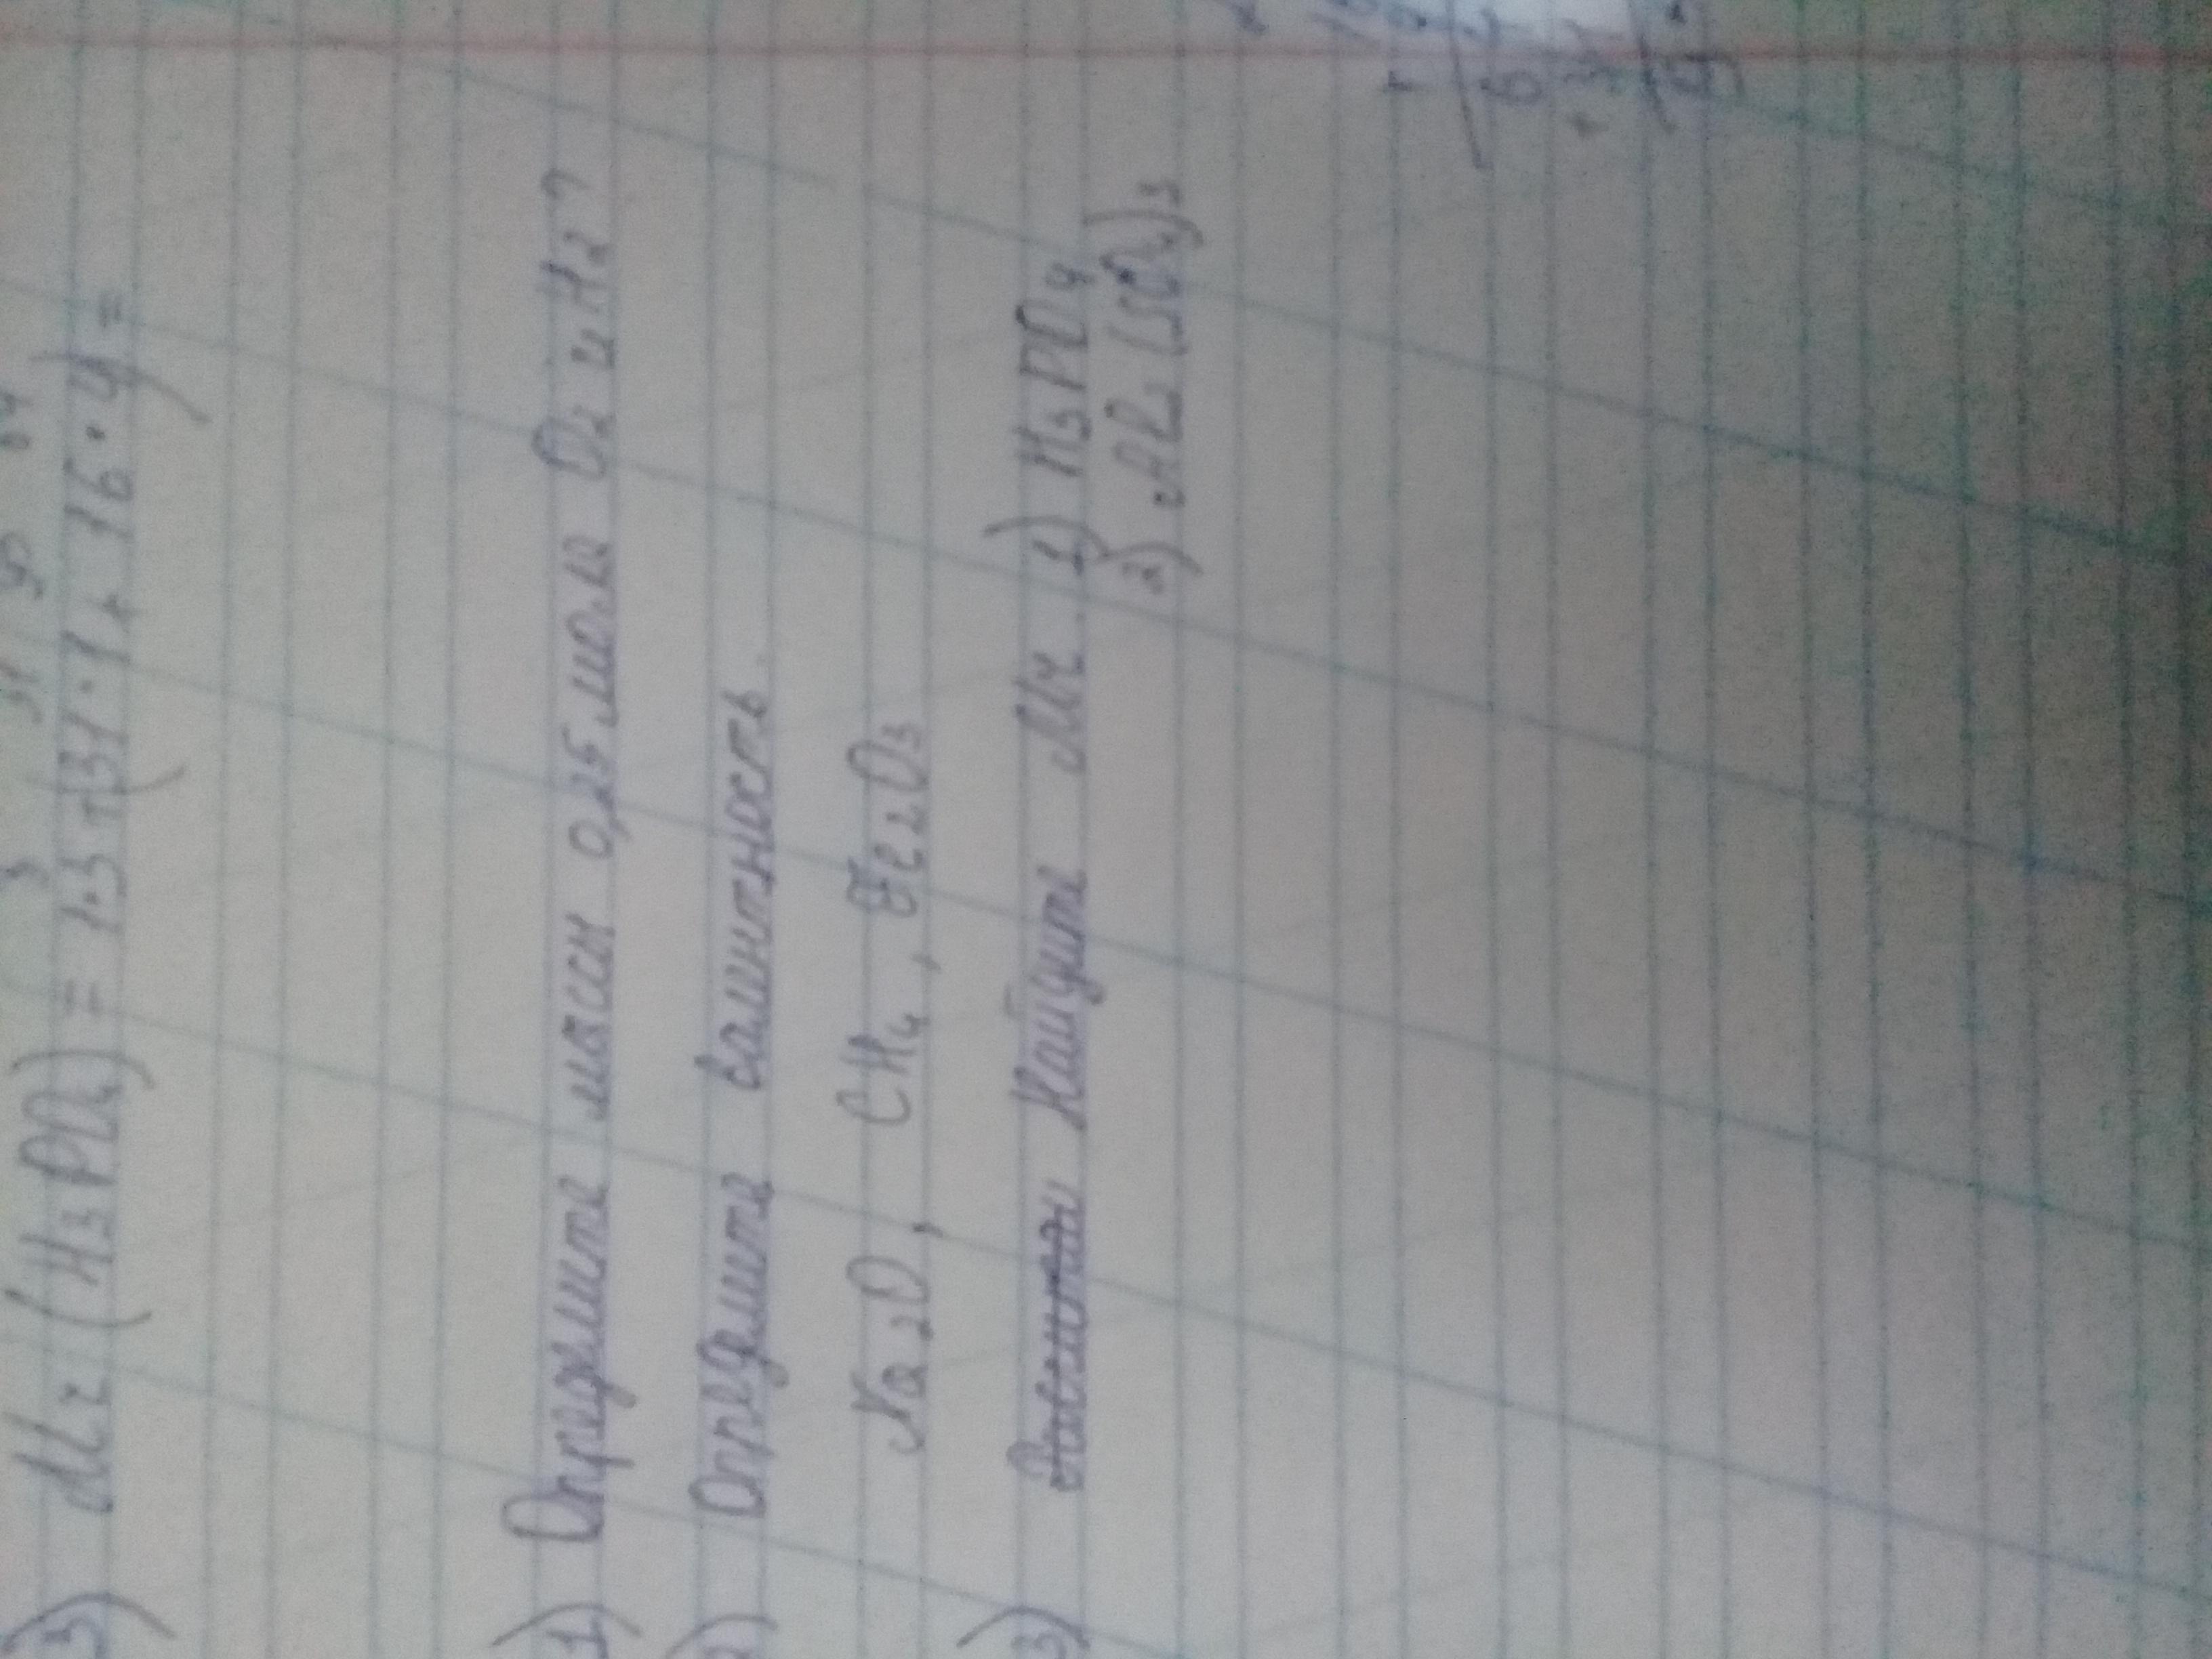 3) Mr (H3PO4) = 1·3+(31·1+16·4)=
1) Определите массы 0,25 моля O2 и H2?
2) Определите валентность.
Na2O, CH4, Fe2O3
3) Найдите Mr 1) H3PO4
2) Al2(SO4)3